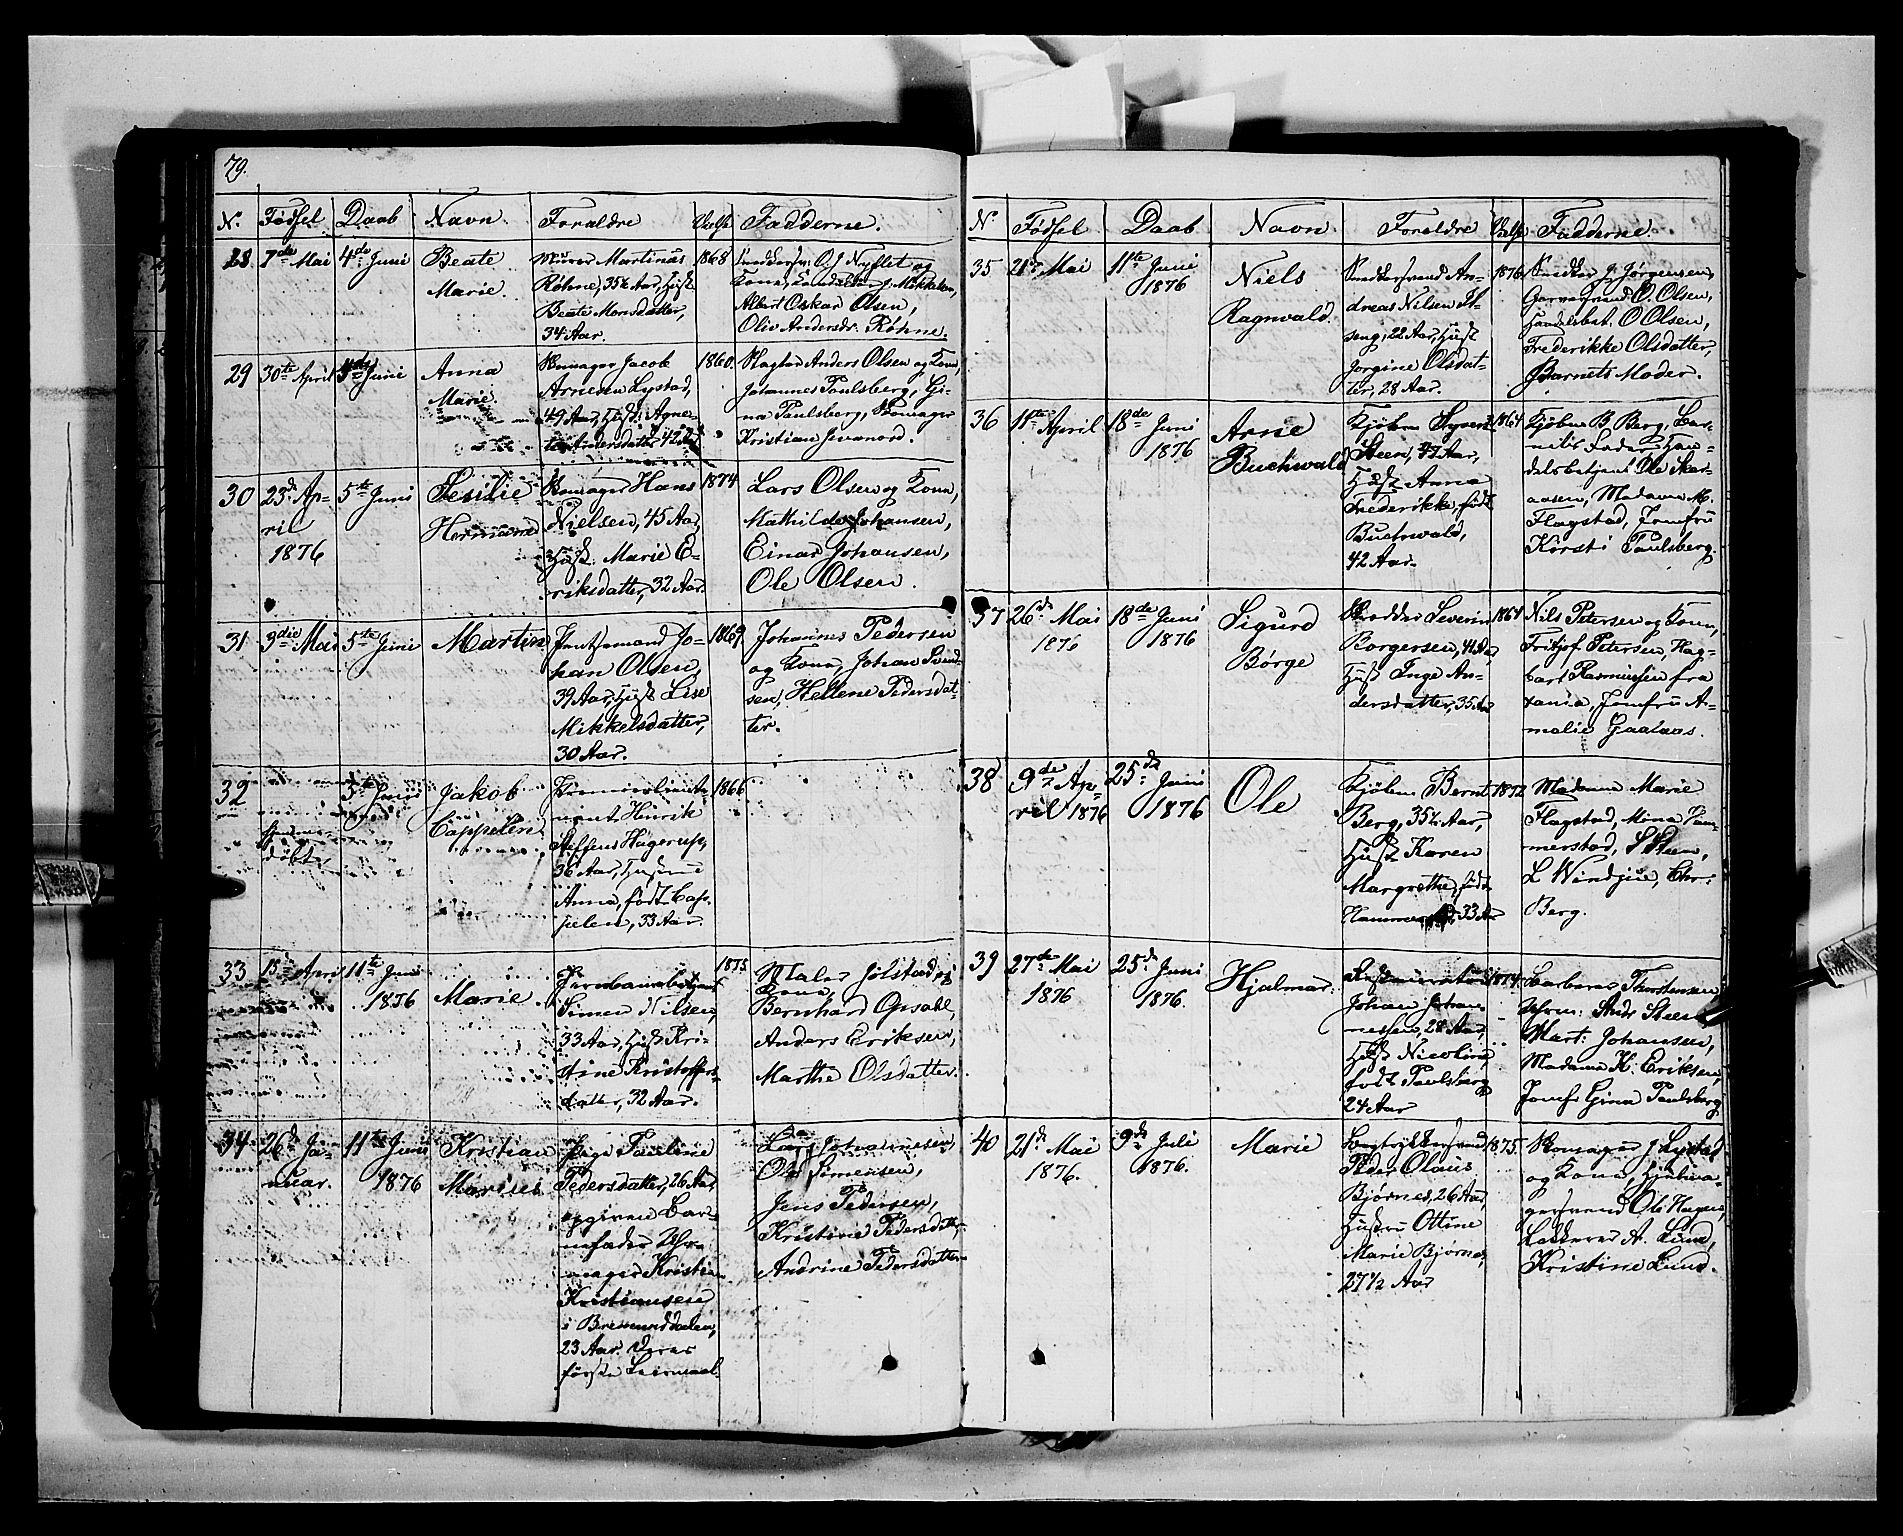 79.
N. Fødsel Daab Navn Foraldre Valse Fadderne.
28 7de Mai 4de Juni Beate Marie
Murer Martinus
Røhne, 35½ Aar, Hust.
Beate Monsdatter,
34 Aar.
1868
Kona,
Albert Oskar Olsen,
Oliv Andersdr. Røhne.
29 30te April 5de Juni Anna Marie
Skomager Jacob
Arnesen Lystad,
49 Aar, Hust. Agne-
te Arnersdatter 42 Aar
1860.
Slagter Anders Olsen og Kona,
Johannes Paulsberg, Gi-
na Paulsberg, Skomager
Kristian
30 23de Ap-
ril
1876
5te Juni
Sesilie
Hermanne
Skomager Hans
Nielsen, 45 Aar,
Hust. Marie E-
riksdatter, 32 Aar.
1874
Lars Olsen og Kona,
Mathilde Johansen,
Einar Johansen,
Ole Olsen.
31 3die Mai 5te Juni Martin
Jo-
han Olsen,
39 Aar, Hust. Lise
Mikkelsdatter,
30 Aar.
1869
Johannes Pedersen
og Kona, Johan Svend-
sen, Hellene Pedersdat-
ter.
32
døbt
5te Juni
Jakob
Cappelen
Henrik
Steffens Hagerup,
36 Aar, Hustru
Anna, født Cap-
pelen, 33 Aar.
1866
33 15de April 11te Juni
1876
Marie
Jernbanebetjent
Simen Nilsen,
33 Aar, Hust. Kri-
stine Kristoffers-
datter, 32 Aar.
1875
Maler Jølstad og
Kona,
Bernhard Opsahl,
Anders Eriksen,
Marthe Olsdatter.
34 26de Ja-
nuar.
11te Juni
1876
Kristian
Marius
Pige Pauline
Pedersdatter, 26 Aar,
opgiven Bar-
nefader Uhr-
mager Kristian
Kristiansen
i Brumunddalen,
23 Aar. Deres
første Leiermaal.
Lars Johannesen,
Ole Simensen,
Jens Pedersen,
Kristine Pedersdatter,
Andrine Pedersdatter
N Fødsel Daab Navn Foraldre Valse Fadderne.
35 21de Mai 11te Juni
1876
Niels
Ragnvald.
Snedkersvend An-
dreas Nilsen
22 Aar, Hust.
Jorgine Olsdat-
ter, 28 Aar.
1876
Snedker J. Jørgensen,
Garversvend O. Olsen,
Handelsbet. O Olsen,
Frederikke Olsdatter,
Barnets Moder.
36 11te April 18de Juni
1876
Arne
Buchwald
Kjøbm. Syvert
Steen, 47 Aar,
Hust. Anna
Frederikke, født
Buchwald,
42 Aar.
1864
Kjøbm. B Berg, Bar-
nets Fader, Han-
delsbetjent Ole Skar-
aasen, Madame M.
Flagstad, Jomfru
Kirsti Paulsberg.
37 26de Mai
1876
18de Juni
1876
Sigurd
Børge
Skrædder Severin
Borgersen, 41 Aar,
Hust. Inge An-
dersdatter, 35 Aar
1864
Nils Petersen og Kona,
Fritjof Petersen, Hag-
bart Rasmussen fra
Jomfru A-
malie Gaalaas.
38 9de Ap-
ril 1876
25de Juni
1876
Ole
Kjøbm. Bernt
Berg, 35½ Aar,
Hust. Karen
Margrethe, født
33 Aar
1872
Madame Marie
Flagstad, Mina Ham-
merstad, S Steen,
L Windju, Chr:
Berg.
39 27de Mai
1876
25de Juni
1876.
Hjalmar.
Johan Johan-
nessen, 28 Aar,
Hust. Nicoline,
født Paulsberg
24 Aar
1874
Barberer Thorstensen,
Uhrm: Andr Steen
Mart: Johansen,
Madame K. Eriksen,
Jomfr Gina Paulsberg
40 21de Mai
1876.
9de Juli
1876.
Marie
Bogtrykkersvend
Peder Olaus
Bjørnes, 26 Aar,
Hustru Ottine
Marie Bjørnes,
27½ Aar
1875.
Skomager J Lystad
og Kona, Hjulma-
gersvend Ole Hagen,
A. Lund,
Kristine Lund.